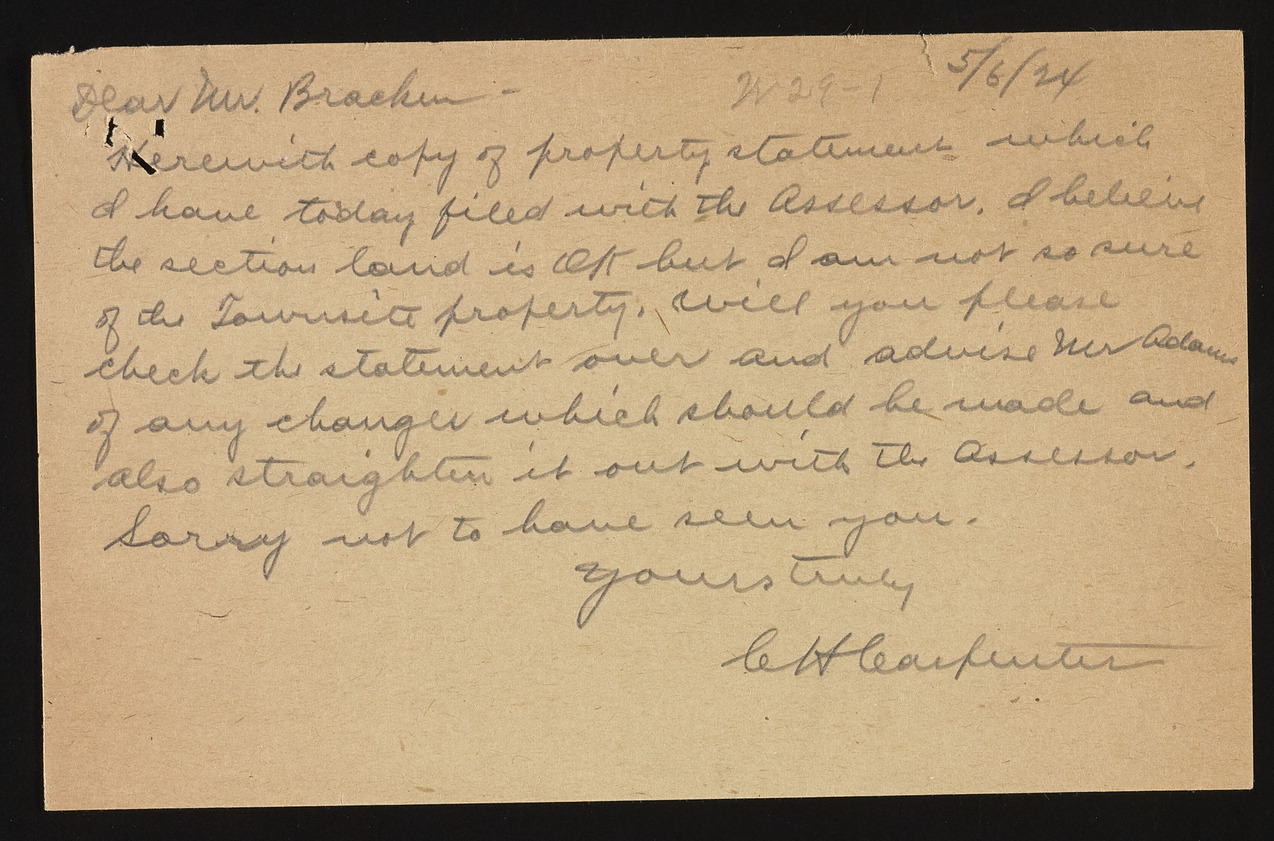 W29-1 5/6/24
Dear Mr. Bracken -
Herewith copy of property statement which
I have today filed with the Assessor. I believe
the section land is OK but I am not so sure
of the Townsite property. Will you please
check the statement over and advise Mr Adams
of any changes which should be made and
also straighten it out with the Assessor.
Sorry not to have seen you.
Yours truly
C H Carpenter